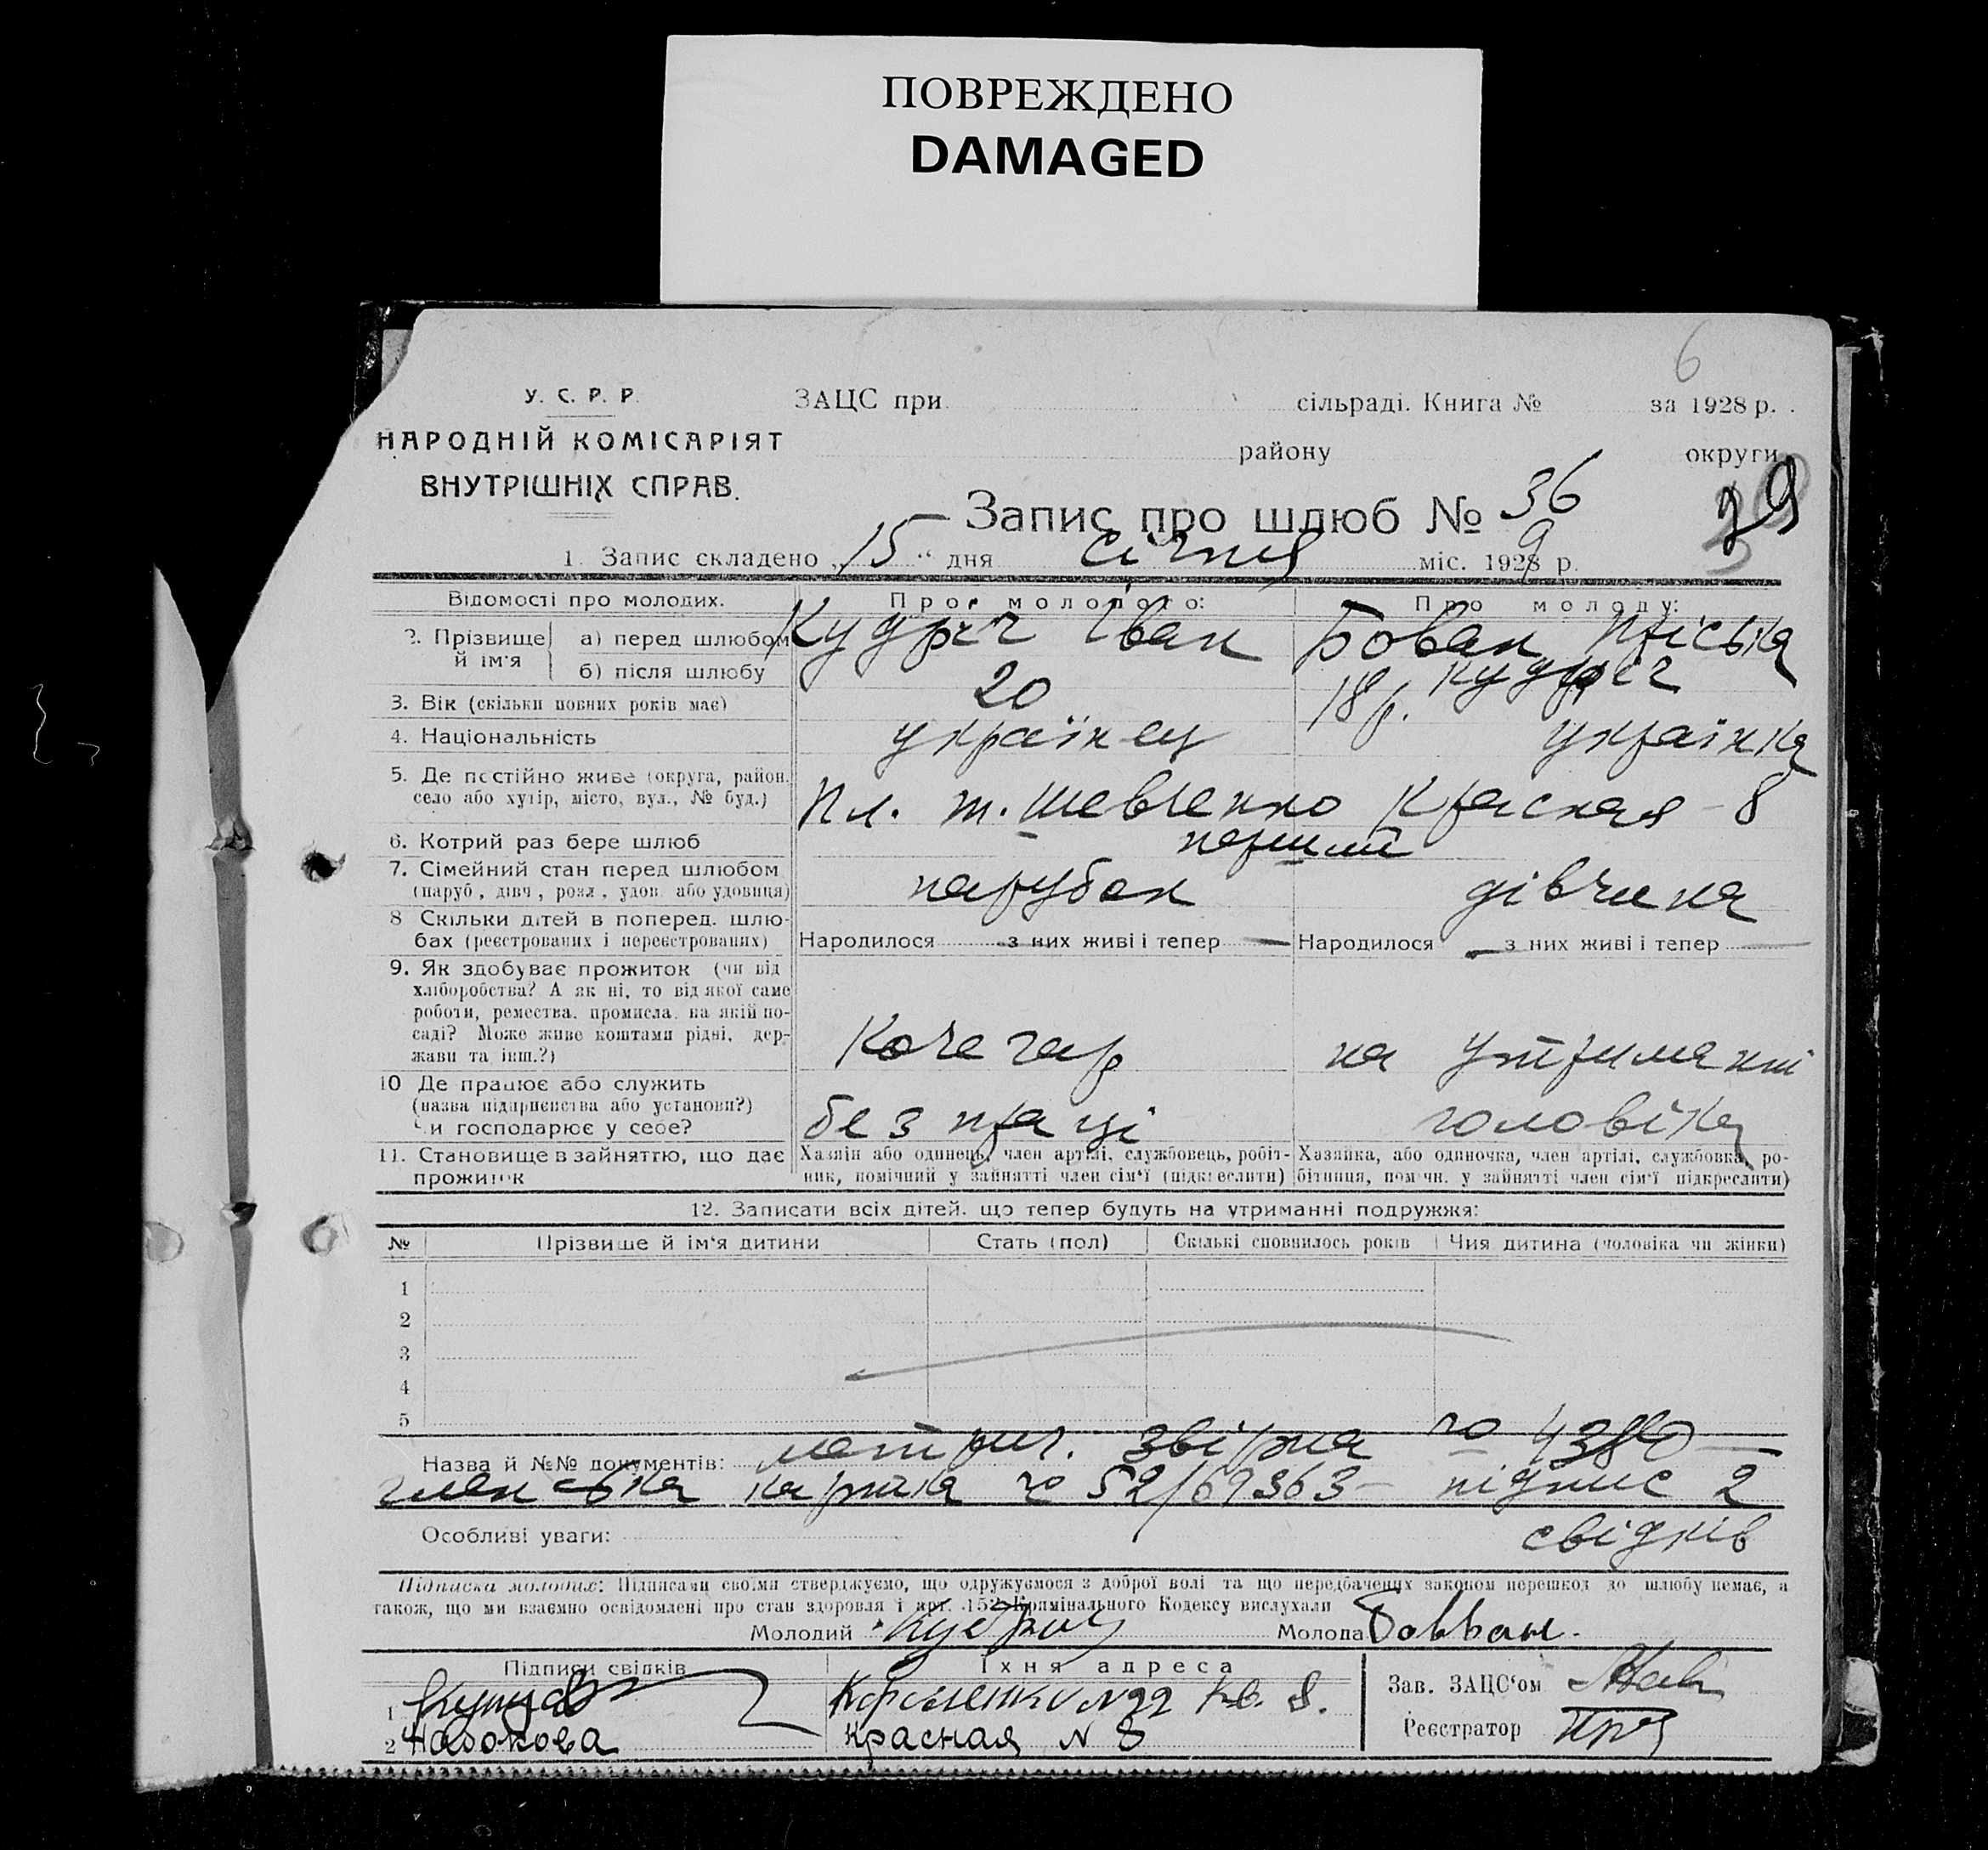 ПОВРЕЖДЕНО
DAMAGED
6
У. С. Р. Р.
НАРОДНІЙ КОМІСАРІЯТ
ВНУТРІШНІХ СПРАВ.
ЗАЦС при сільраді. Книга № за 1928 р.
району округи
39
Запис про шлюб № 36
1. Запис складено „15“ дня січня міс. 1929 р.
Відомості про молодих. Про молодого: Про молоду:
2. Прізвище й ім'я
а) перед шлюбом Кудріч Іван Бован Пріська
б) після шлюбу Кудріч
3. Вік (скільки повних років має) 20 18 р.
4. Національність українец українка
5. Де постійно живе (округа, район, село або хутір, місто, вул., № буд.) Пл. т. Шевченко Красная - 8
6. Котрий раз бере шлюб перший
7. Сімейний стан перед шлюбом
(паруб., дівч., розл., удов. або удовиця) парубок дівчина
8 Скільки дітей в поперед. шлю-
бах (реєстрованих і нереєстрованих) Народилося — з них живі і тепер — Народилося — з них живі і тепер —
9. Як здобуває прожиток (чи від
хліборобства? А як ні, то від якої саме
роботи, ремества, промисла, на якій по-
саді? Може живе коштами рідні, дер-
жави та інш.?) Кочегар на утриманні
10 Де працює або служить
(назва підприємства або установи?)
Чи господарює у себе? без праці чоловіка
11. Становище в зайняттю, що дає
прожиток
Хазяїн або одинець, член артілі, службовець, робіт-
ник, помічний у зайнятті член сім'ї (підкреслити)
Хазяйка, або одиночка, член артілі, службовка, ро-
бітниця, помічн. у зайнятті член сім'ї підкреслити)
12. Записати всіх дітей, що тепер будуть на утриманні подружжя:
№ Прізвище й ім'я дитини Стать (пол) Скількі сповнилось років Чия дитина (чоловіка чи жінки)
1
2
3
4
5
Назва й №№ документів: метрич. звірка № 4380 —
членська картка № 52/69363 — підпис 2
Особливі уваги: свідків
Підписка молодих: Підписами своїми стверджуємо, що одружуємося з доброї волі та що передбачених законом перешкод до шлюбу немає, а
також, що ми взаємно освідомлені про стан здоровля і арт. 152 Кримінального Кодексу вислухали
Молодий Кудрич Молода Бовван.
Підписи свідків Їхня адреса
1 Короленко № 22 кв. 8.
2 Красная N 8
Зав. ЗАЦС'ом
Реєстратор